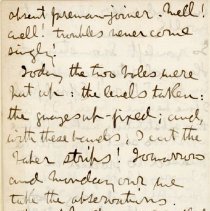 absent foreman-joiner. Well!
well! troubles never come
singly!
Today the two poles were
put up: the levels taken:
the gauges up-fixed; and,
with these hands, I cut the
taker strips! Tomorrow
and Monday we
take the observations.